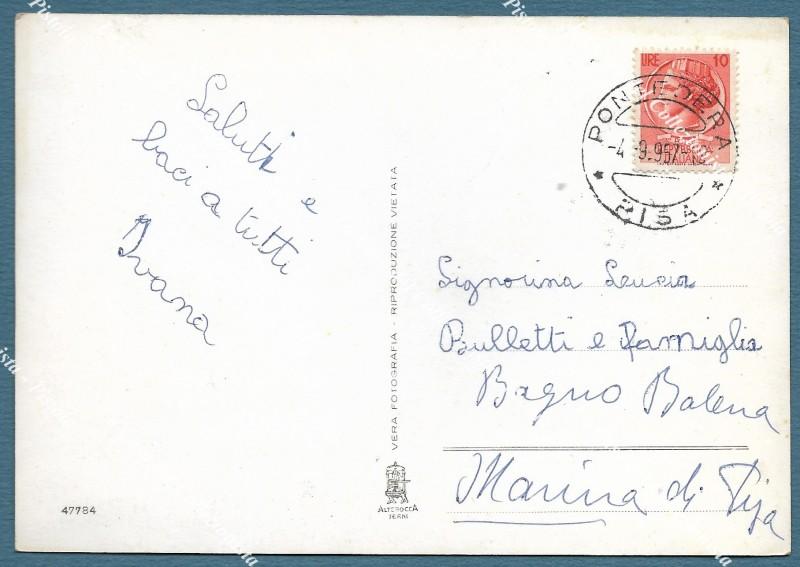 Saluti e
baci a tutti
Ivana
VERA FOTOGRAFIA - RIPRODUZIONE VIETATA
ALTEROCCA
TERNI
47784
LIRE 10
REPUBBLICA
ITALIANA
PONTEDERA
PISA
Signorina Leucia
Bulletti e Famiglia
Bagno Balena
Marina di Pisa